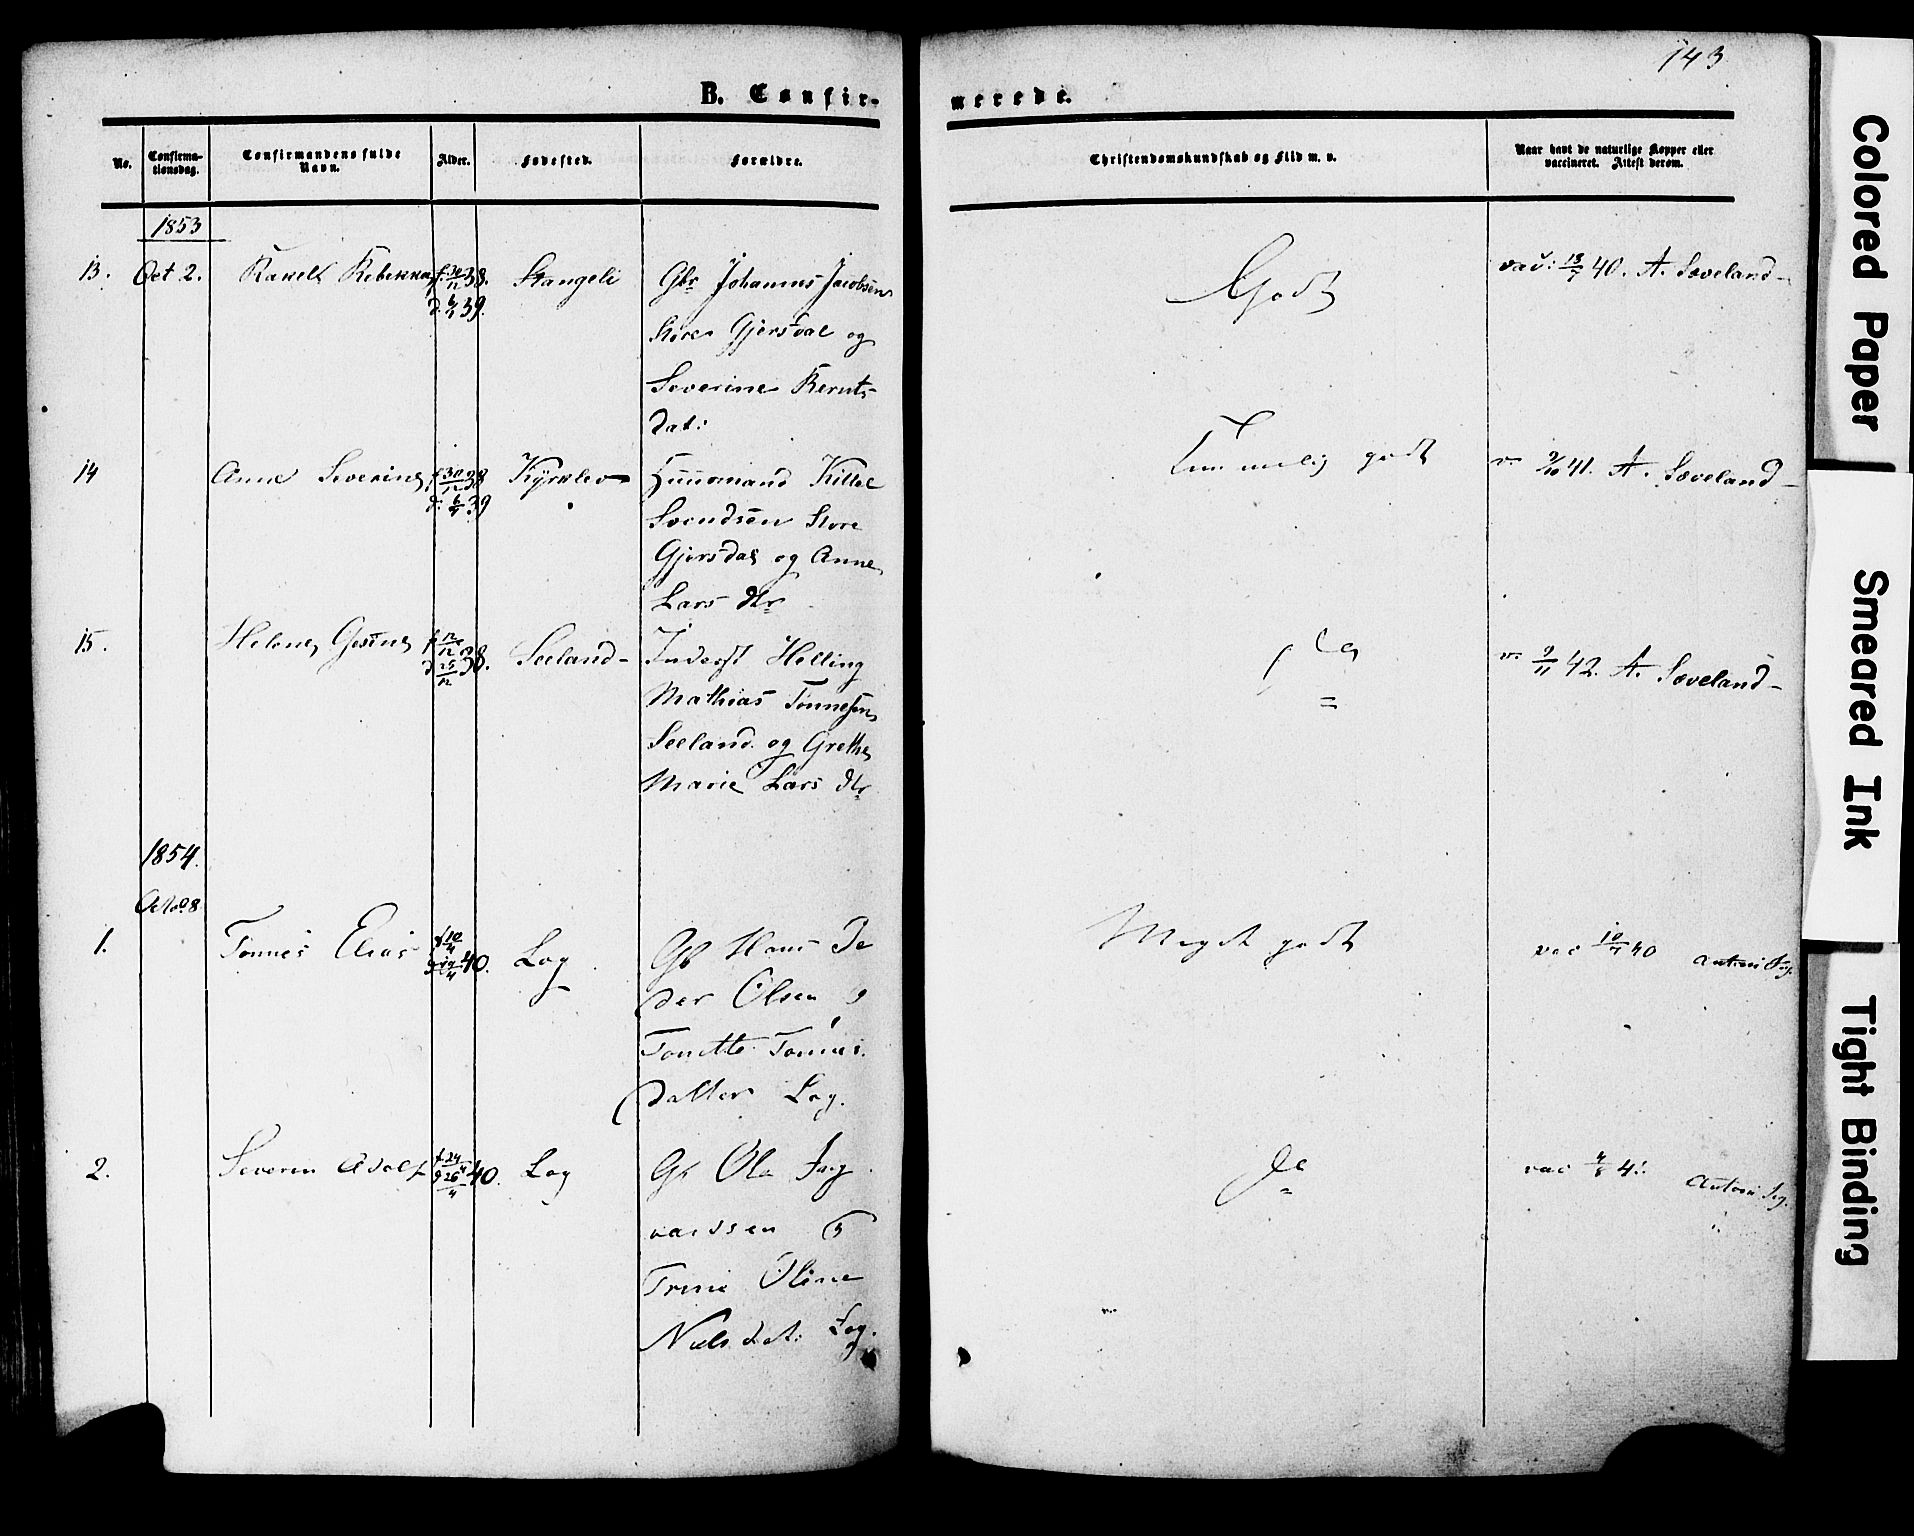 143
B. Confir-
merede.
No.
Confirma-
tionsdag.
Confirmandens fulde
Navn.
Alder.
Fødested.
Forældre.
Christendomskundskab og Flid m. v.
Naar havt de naturlige Kopper eller
vaccineret. Attest derom.
1853
13. Oct 2. Rakell Rebekka f. 30/12 38. Stangeli Gbr Johannes Jacobsen
d. 6/1 39.
Store Gjersdal og
Severine Bernts-
dat:
Godt
vac: 13/7 40. A. Sæveland
14 Anne Severine f. 30/12 38 Kyrklev Huusmand Kittel
d. 6/1 39
Svendsen Store
Gjersdal og Anne
Lars dtr
Temmelig godt
v. 9/10 41. A. Sæveland
15. Helene Gesine f 12/12 38. Seeland Inderst Helling
d 25/12
Mathias Tønnesen
Seeland og Grethe
Marie Lars dtr
v. 9/11 42. A. Sæveland
1854.
Octo. 8
1. Tønnes Elias f 10/4 40. Log Gb Hans Pe
g 19/4
der Olsen og
Tonette Tønnes
datter Log.
Meget godt
vac 10/7 40
2. Severin Adolf f 24/4 40. Log Gb Ole Ing
g 26/4
vardsen og
Trine Oline
Niels dat: Log.
Do
vac
Colored Paper
Smeared Ink
Tight Binding